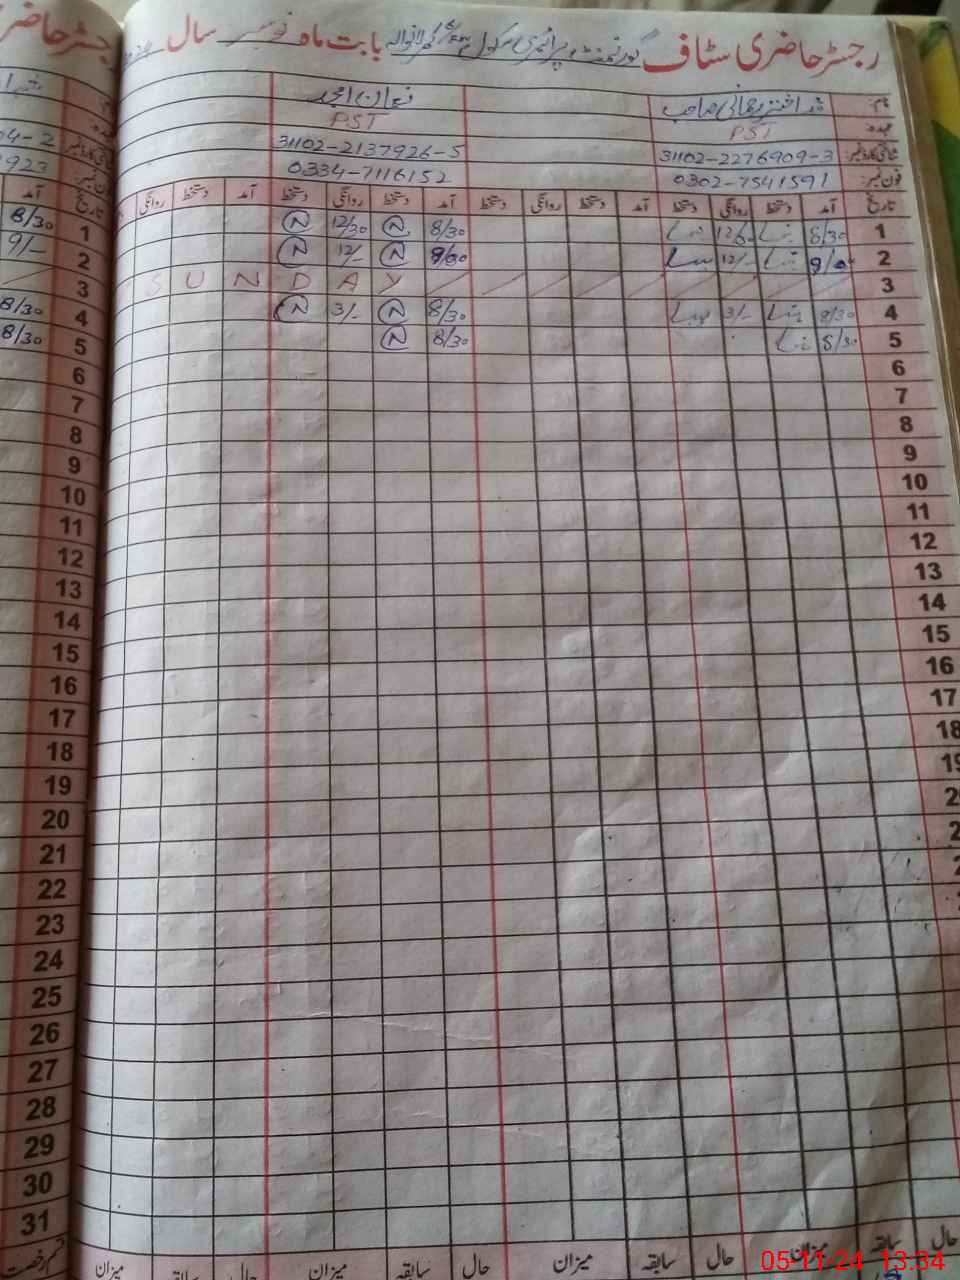 رجسٹر حاضری سٹاف گورنمنٹ پرائمری سکول بابت ماہ نومبر سال
نام:
عہدہ: PST PST
شناختی کارڈ نمبر: 31102-2276909-3 31102-2137926-5
فون نمبر: 0302-7541591 0334-7116152
تاریخ آمد دستخط روانگی دستخط آمد دستخط روانگی دستخط آمد دستخط روانگی دستخط آمد دستخط روانگی
1 8/30 8/30 N 12/30 N 1 8/30
2 9/0 12/- N 12/- N 2 9/-
3 SUNDAY 3
4 8/30 3/- 8/30 N 3/- N 4 8/30
5 8/30 8/30 N 5 8/30
6 6
7 7
8 8
9 9
10 10
11 11
12 12
13 13
14 14
15 15
16 16
17 17
18 18
19 19
20
21
22
23
24
25
26
27
28
29
30
31
حال سابقہ میزان حال سابقہ میزان حال سابقہ میزان حال سابقہ میزان قسم رخصت
05-11-24 13:34